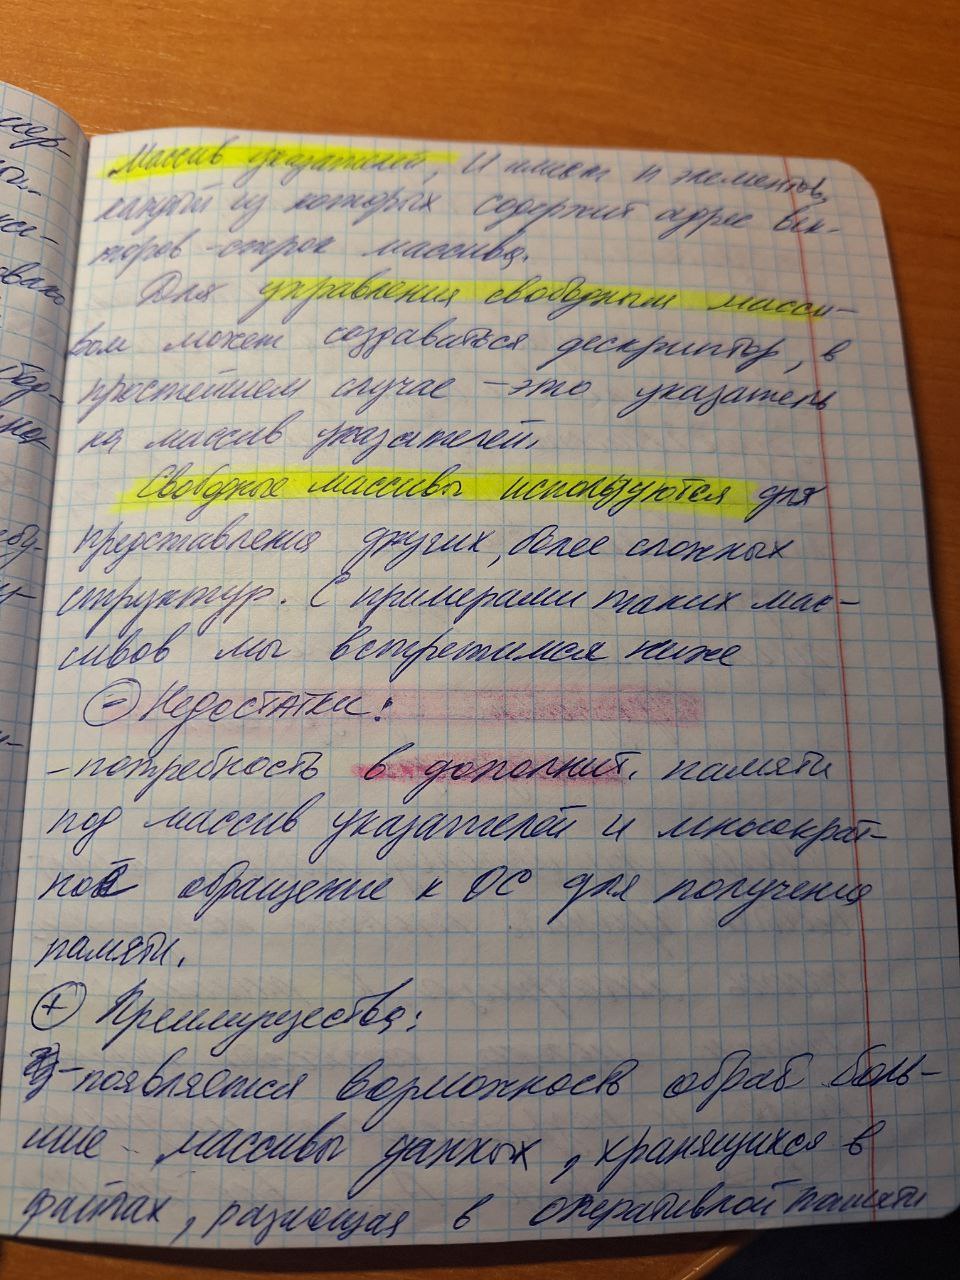 Массив указателей, И имеем n элементов,
каждый из которых содержит адрес век-
торов-строк массива.
Для управления свободным масси-
вом может создаваться дескриптор, в
простейшем случае - это указатель
на массив указателей.
Свободные массивы используются для
представления других, более сложных
структур. С примерами таких мас-
сивов мы встретимся ниже
⊖ Недостатки:
- потребность в дополнит. памяти
под массив указателей и многократ-
ное обращение к ОС для получения
памяти.
⊕ Преимущества:
- появляется возможность обраб. боль-
шие массивы данных, хранящихся в
файлах, размещая в оперативной памяти